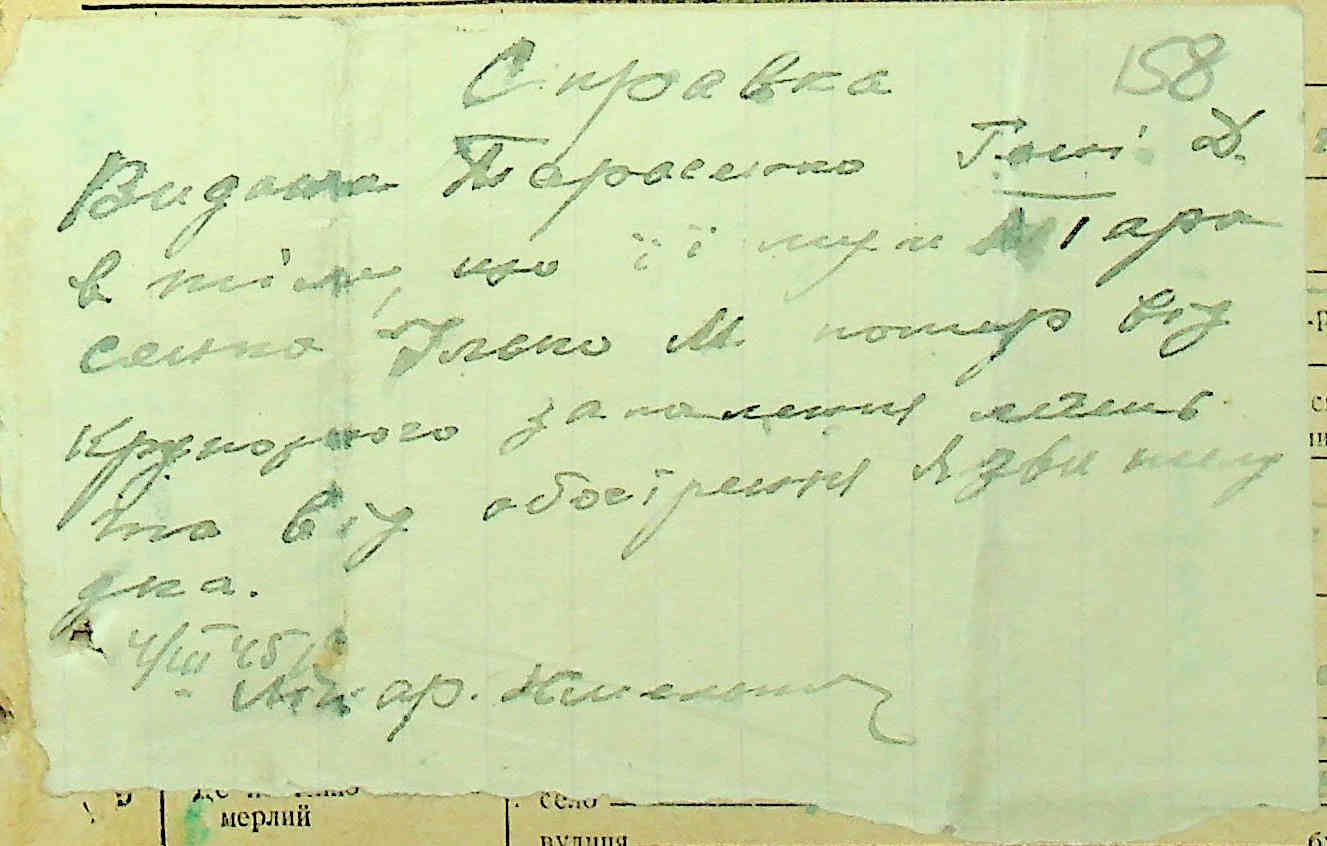 Справка
158
Видана Тарасенко Тані Д.
в тім, що її муж Тара
сенко Ілько М. помер від
крупозного запалення легень
та від обострення язви шлу
дка.
4/III 45 р
Лікар.
мерлий
село
вулиця